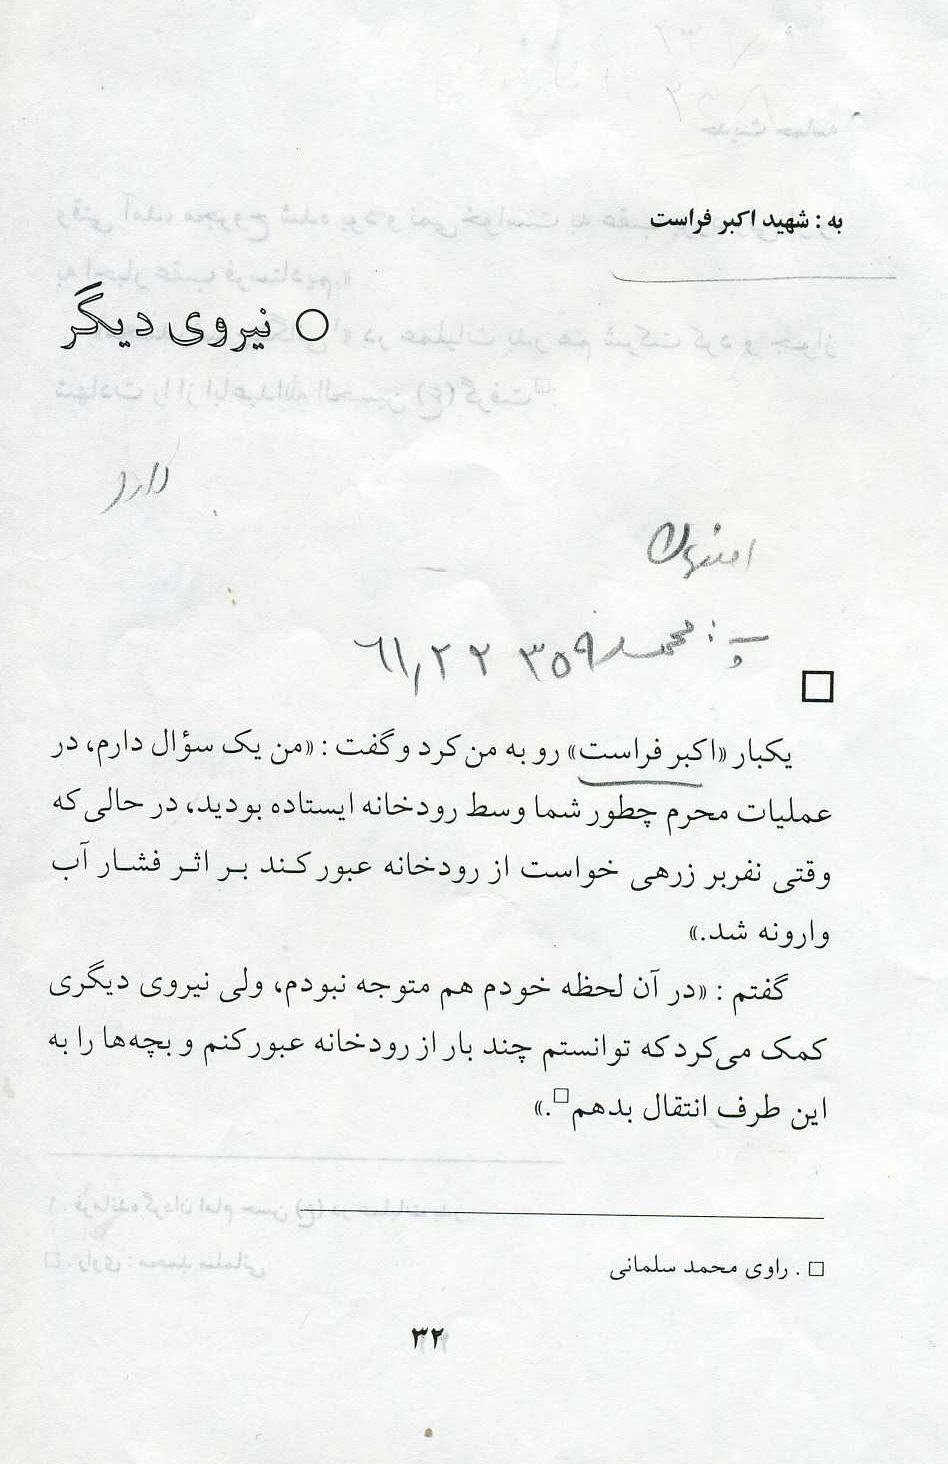 به : شهید اکبر فراست
○ نیروی دیگر
اصفهان
پ : محمد ۳۵۹ ۲۲ ۶۱,۲
□
یکبار «اکبر فراست» رو به من کرد و گفت : «من یک سؤال دارم، در
عملیات محرم چطور شما وسط رودخانه ایستاده بودید، در حالی که
وقتی نفربر زرهی خواست از رودخانه عبور کند بر اثر فشار آب
وارونه شد.»
گفتم : «در آن لحظه خودم هم متوجه نبودم، ولی نیروی دیگری
کمک می‌کرد که توانستم چند بار از رودخانه عبور کنم و بچه‌ها را به
این طرف انتقال بدهم□.»
□ . راوی محمد سلمانی
۳۲